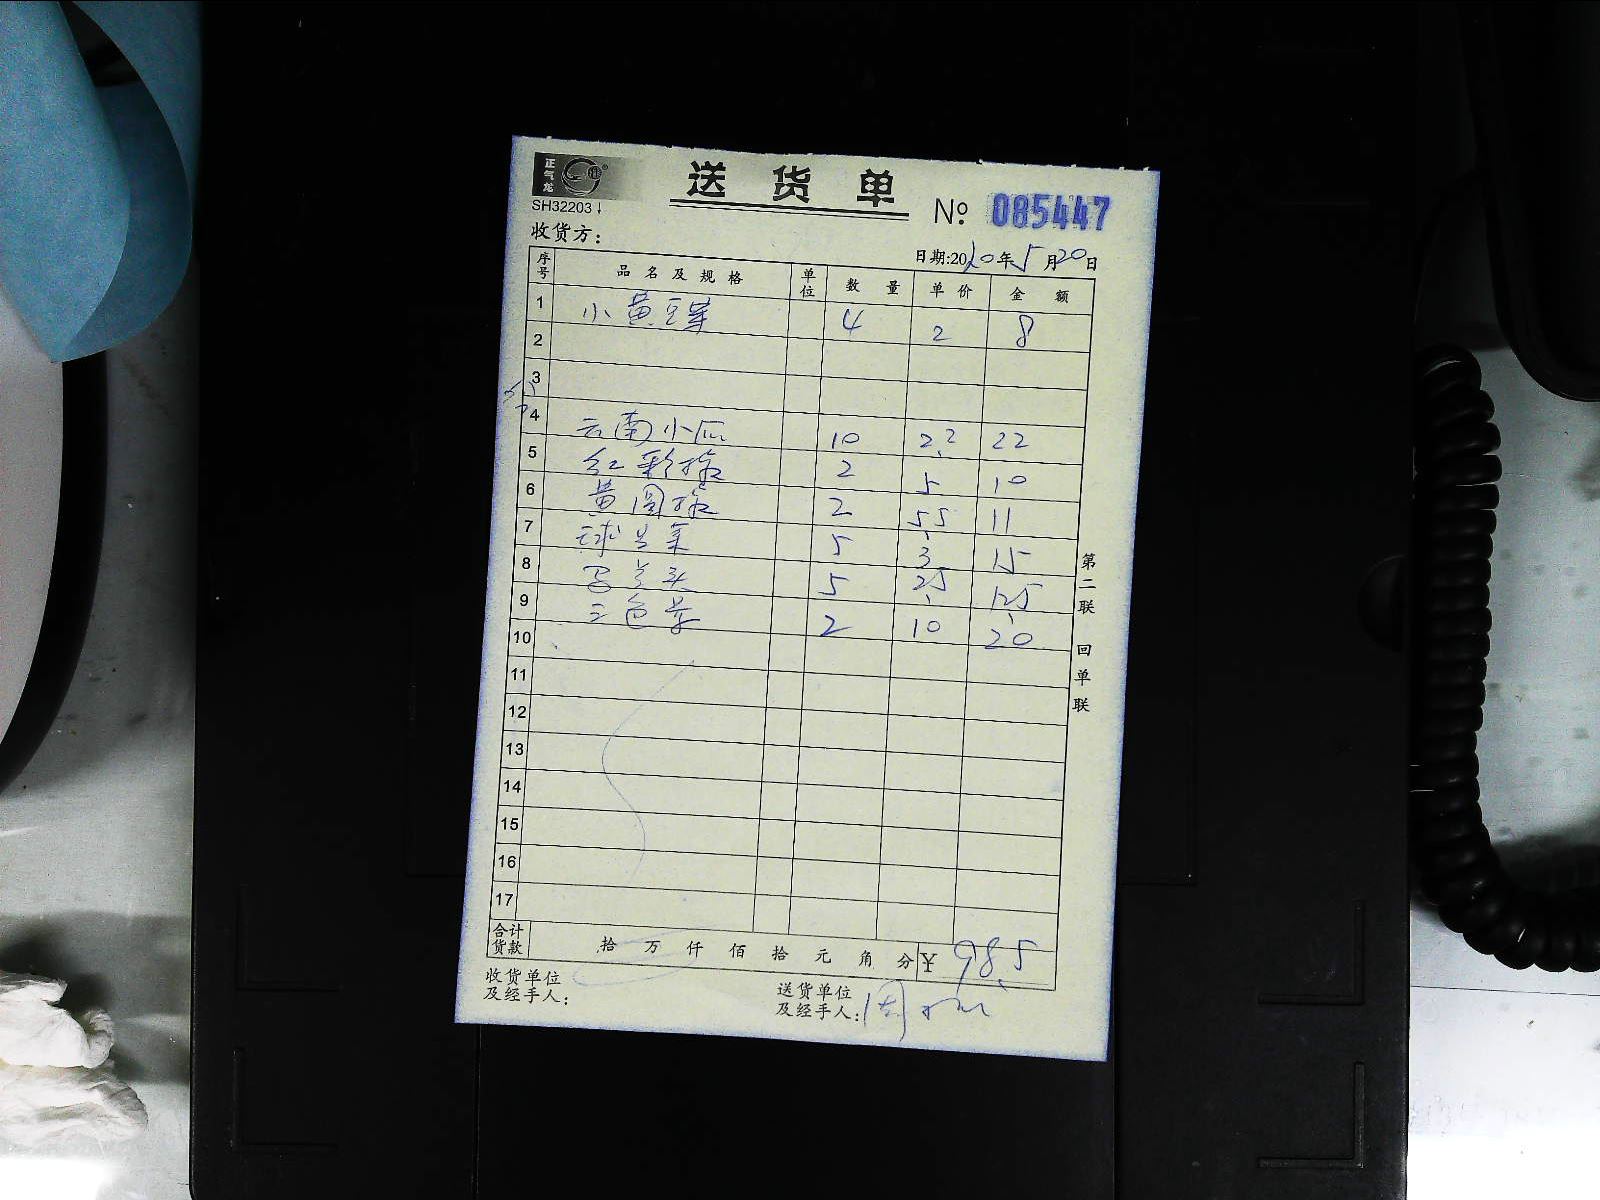 正气龙
SH32203
送货单
№ 085447
收货方：
日期:2020年5月20日
序号 品名及规格 单位 数量 单价 金额
1 小黄豆芽 4 2 8
2
3
4 云南小瓜 10 2.2 22
5 红彩椒 2 5 10
6 黄圆椒 2 5.5 11
7 球生菜 5 3 15
8 5 2.5 12.5
9 三色芽 2 10 20
10
11
12
13
14
15
16
17
合计货款 拾 万 仟 佰 拾 元 角 分 ¥ 98.5
收货单位及经手人：
送货单位及经手人：周
第二联 回单联